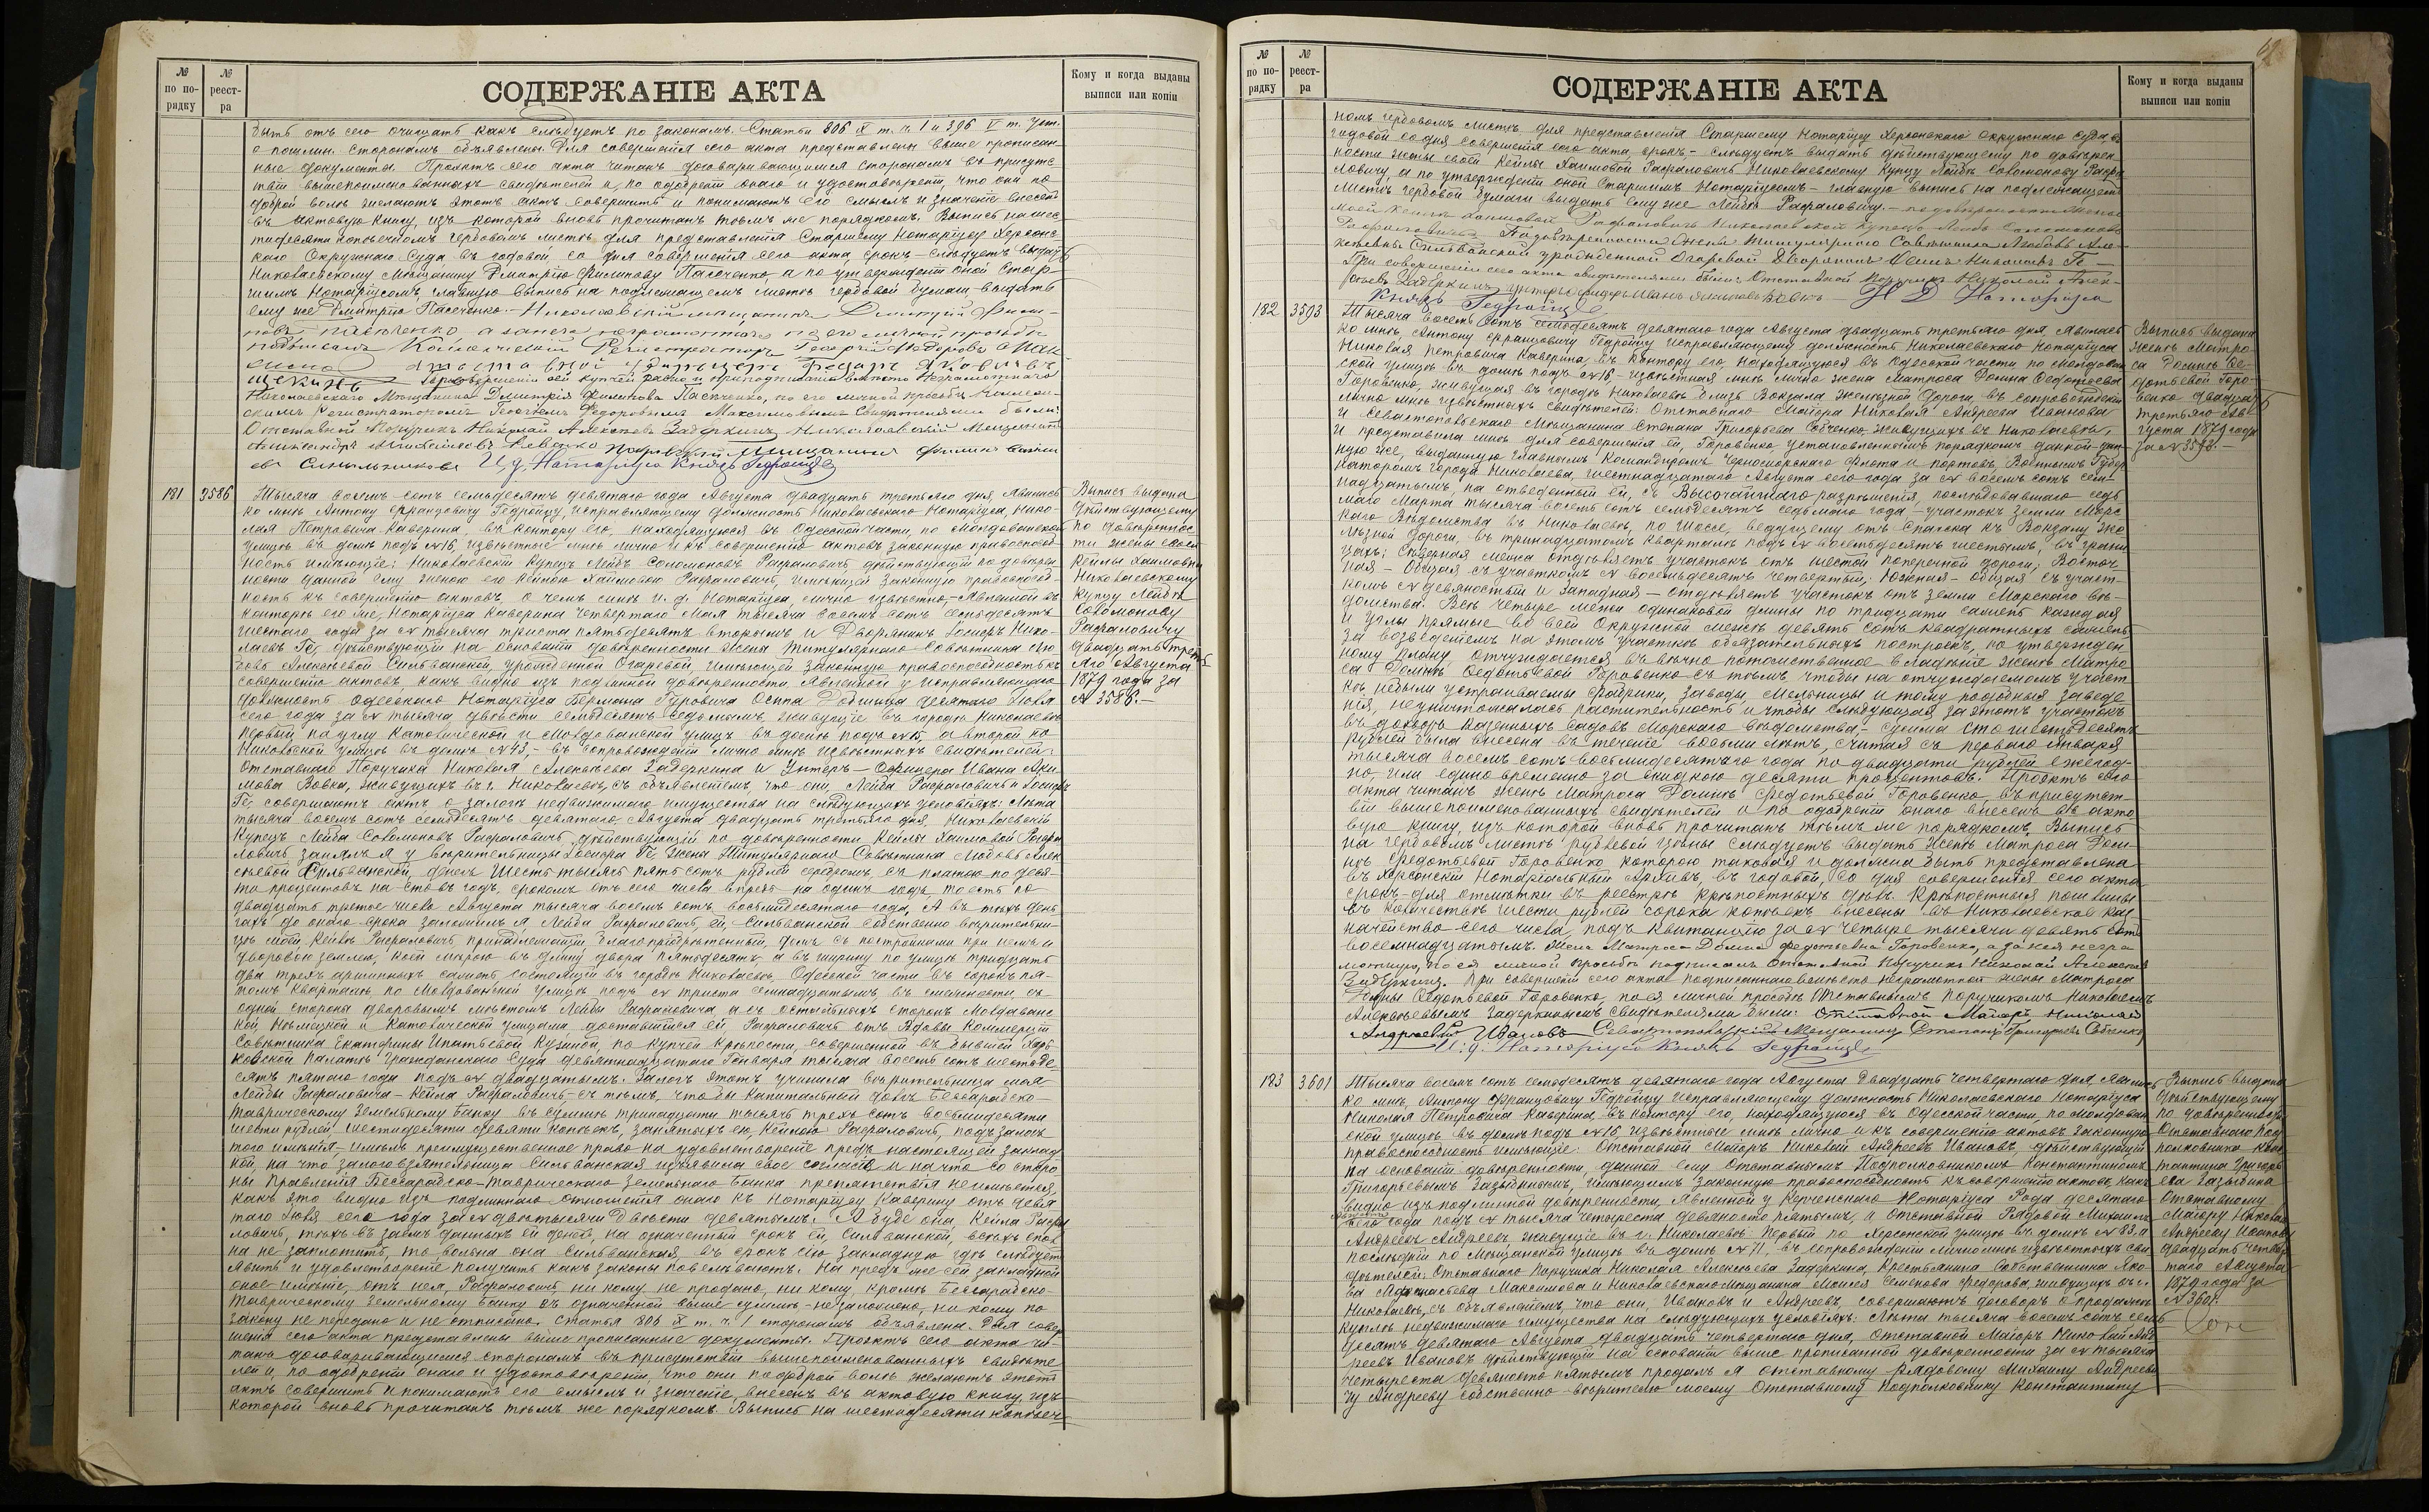 № по порядку
№ реестра
СОДЕРЖАНІЕ АКТА
Кому и когда выданы выписи или копіи
быть отъ сего очищать какъ слѣдуетъ по законамъ. Статьи 806 X т. ч. 1 и 396 V т. Уст.
о пошлин. сторонамъ объявлены. Для совершенія сего акта представлены выше прописан
ные документы. Проэктъ сего акта читанъ договаривающимся сторонамъ въ присутс
твіи вышепоименованныхъ свидѣтелей и, по одобреніи онаго и удостовѣреніи, что они по
доброй волѣ желаютъ этотъ актъ совершить и понимаютъ его смыслъ и значеніе внесенъ
въ актовую книгу, изъ которой вновь прочитанъ тѣмъ же порядкомъ. Выпись на шес
тидесяти копѣечномъ гербовомъ листѣ для представленія Старшему Нотаріусу Херсонс
каго Окружнаго Суда въ годовой, со дня совершенія сего акта, срокъ – слѣдуетъ выдать
Николаевскому Мѣщанину Дмитрію Филипову Пасеченко, а по утвержденіи оной Стар
шимъ Нотаріусомъ, главную выпись на подлежащемъ листѣ гербовой бумаги выдать
ему же Дмитрію Пасеченко. – Николаевскій мещанинъ Дмитрій Фили-
повъ Пасеченко а занего неграмотнаго по его личной прозьбѣ
подписалъ Колежскій Регистраторъ Георгій Федоровъ Мак
При совершеніи сей купчей и приподписаніи вмѣсто Неграмотнаго
Николаевскаго Мѣщанина Дмитрія Филипова Пасеченко, по его личной просьбѣ Коллеж-
скимъ Регистраторомъ Георгіемъ Федоровымъ Максимовымъ Свидѣтелями были:
Отставной Поручикъ Николай Алексѣевъ Задеркинъ Николаевскій Мещанинъ
И.д. Нотаріуса Князь Гедройцъ
181
3586
Тысяча восемь сотъ семьдесятъ девятаго года Августа двадцать третьяго дня, явились
ко мнѣ Антону Францовичу Гедройцу, исправляющему должность Николаевскаго Нотаріуса, Нико-
лая Петровича Каверина, въ контору его, находящуюся въ Одесской части, по Молдованской
улицѣ въ домѣ подъ № 16, извѣстные мнѣ лично и къ совершенію актовъ законную правоспособ-
ность имѣющіе: Николаевскій Купецъ Лейба Соломоновъ Рафаловичъ, дѣйствующій по довѣрен
ности данной ему женою его Кейлою Хаимовою Рафаловичъ, имѣющей законную правоспособ-
ность къ совершенію актовъ, о чемъ мнѣ и. д. Нотаріуса лично извѣстно, – явленной въ
конторѣ его же, Нотаріуса Каверина четвертаго Мая тысяча восемь сотъ семьдесятъ
шестаго года за № тысяча триста пятьдесятъ вторымъ и Дворянинъ Іосифъ Нико-
лаевъ Ге, дѣйствующій на основаніи довѣренности Жены Титулярнаго Совѣтника Лю
бовь Алексѣевой Сильванской, урожденной Огаревой, имѣющей законную правоспособность къ
совершенію актовъ какъ видно изъ подлинной довѣренности, явленной у исправляющаго
должность Одесскаго Нотаріуса Бермана Гуровича Осипа десятаго Іюля
сего года за № тысяча двѣсти семьдесятъ седьмымъ, живущіе въ городѣ Николаевѣ
первый на углу Католической и Молдованской улицъ въ домѣ подъ № 15, а второй по
Никольской улицѣ въ домѣ № 43, – въ сопровожденіи лично мнѣ извѣстныхъ свидѣтелей:
Отставнаго Поручика Николая Алексѣева Задеркина и Унтеръ-Офицера Ивана Аки
мова Вовка, живущихъ въ г. Николаевѣ, съ объявленіемъ, что они, Лейба Рафаловичъ и Іосифъ
Ге, совершаютъ актъ о залогѣ недвижимаго имущества на слѣдующихъ условіяхъ: Лѣта
тысяча восемь сотъ семьдесятъ девятаго Августа двадцать третьяго дня, Николаевскій
Купецъ Лейба Соломоновъ Рафаловичъ, дѣйствующій по довѣренности Кейлы Хаимовой Рафа
ловичъ занялъ я у вѣрительницы Іосифа Ге, Жены Титулярнаго Совѣтника Любовь Алек
сѣевой Сильванской, денегъ Шесть тысячъ пять сотъ рублей серебромъ съ платою по девя-
ти процентовъ на сто въ годъ, срокомъ отъ сего числа впредь на одинъ годъ, то есть по
двадцать третье число Августа тысяча восемь сотъ восьмидесятаго года, А въ тѣхъ день
гахъ до онаго срока заложилъ я Лейба Рафаловичъ, ей, Сильванской собственно вѣрительни-
цѣ моей, Кейлѣ Рафаловичъ принадлежащій, благопріобрѣтенный, домъ съ постройками при немъ и
дворовою землею, коей мѣрою въ длину двора пятьдесятъ а въ ширину по улицѣ тридцать
два трехъ аршинныхъ саженъ, состоящій въ городѣ Николаевѣ, Одесской части въ сорокъ пя-
томъ кварталѣ, по Молдованской улицѣ подъ № триста семнадцатымъ, въ смежности, съ
одной стороны дворовымъ мѣстомъ Лейбы Рафаловича, а съ остальныхъ сторонъ Молдованс
кой, Нѣмецкой и Католической улицами, доставшійся ей, Рафаловичъ отъ Вдовы Коммерціи
Совѣтника Екатерины Ипатьевой Кузиной, по купчей Крѣпости, совершенной въ бывшей Харь
ковской Палатѣ Гражданскаго Суда девятнадцатаго Генваря тысяча восемь сотъ шестьде
сятъ пятаго года подъ № двадцатымъ. Залогъ этотъ учинила вѣрительница моя –
Лейбы Рафаловича – Кейла Рафаловичъ – съ тѣмъ, что бы капитальный долгъ Бессарабско-
Таврическому Земельному Банку въ суммѣ тринадцати тысячъ трехъ сотъ восьмидесяти
шести рублей, шестидесяти девяти копѣекъ, занятыхъ ею, Кейлою Рафаловичъ, подъ залогъ
того имѣнія – имѣлъ преимущественное право на удовлетвореніе предъ настоящей заклад
ной, на что залоговзятельница Сильванская изъявила свое согласіе и на что со сторо
ны Правленія Бессарабско-Таврическаго Земельнаго Банка препятствія не имѣется,
какъ это видно изъ подлиннаго отношенія онаго къ Нотаріусу Каверину отъ девя
таго Іюля сего года за № двѣтысячи двѣсти девятымъ. А буде она, Кейла Рафа
ловичъ, тѣхъ въ заемъ данныхъ ей денегъ, на означенный срокъ ей, Сильванской, всѣхъ спол
на не заплотитъ, то вольна она Сильванская, въ срокъ сію закладную гдѣ слѣдуетъ
явить и удовлетвореніе получить какъ законы повелѣваютъ. На предъ же сей закладной
оное имѣніе, отъ нея, Рафаловичъ, ни кому не продано, ни кому, кромѣ Бессарабско-
Таврическому Земельному Банку въ означенной выше суммѣ – не заложено, ни кому по
закону не передано и не отписано. Статья 806 X т. ч. 1 сторонамъ объявлена. Для совер
шенія сего акта представлены выше прописанные документы. Проэктъ сего акта чи
танъ договаривающимся сторонамъ въ присутствіи вышепоименованныхъ свидѣте
лей и, по одобреніи онаго и удостовѣреніи, что они по доброй волѣ желаютъ этотъ
актъ совершить и понимаютъ его смыслъ и значеніе, внесенъ въ актовую книгу, изъ
которой вновь прочитанъ тѣмъ же порядкомъ. Выпись на шестидесяти копѣеч
Выпись выдана
дѣйствующему
по довѣреннос
ти жены своей
Кейлы Хаимовны
Николаевскому
Купцу Лейбѣ
Соломонову
Рафаловичу
двадцать треть
яго Августа
1879 года за
№ 3586. –
69
№ по порядку
№ реестра
СОДЕРЖАНІЕ АКТА
Кому и когда выданы выписи или копіи
номъ гербовомъ листѣ для представленія Старшему Нотаріусу Херсонскаго Окружнаго Суда, въ
годовой со дня совершенія сего акта, срокъ, – слѣдуетъ выдать дѣйствующему по довѣрен
ности жены своей Кейлы Хаимовой Рафаловичъ Николаевскому Купцу Лейбѣ Соломонову Рафа
ловичу, а по утвержденіи оной Старшимъ Нотаріусомъ – главную выпись на подлежащемъ
листѣ гербовой бумаги выдать ему же Лейбѣ Рафаловичу. – по довѣренности жены
моей Кейлы Хаимовой Рафаловичъ Николаевскій Купецъ Лейба Соломоновъ
Рафаловичъ По довѣренности Жены Титулярнаго Совѣтника Любовь Але-
ксѣевны Сильванской урожденной Огаревой Дворянинъ Іосифъ Николаевъ Ге –
При совершеніи сего акта свидѣтелями были: Отставной Поручикъ Николай Алек-
сѣевъ Задеркинъ Унтеръ Офицеръ Иванъ Якимовъ Вовкъ – И Д Нотаріуса
Князь Гедройцъ
182
3593
Тысяча восемь сотъ семьдесятъ девятаго года Августа двадцать третьяго дня, явилась
ко мнѣ, Антону Францовичу Гедройцу исправляющему должность Николаевскаго Нотаріуса
Николая Петровича Каверина, въ контору его, находящуюся въ Одесской части по Молдован
ской улицѣ въ домѣ подъ № 16 – извѣстная мнѣ лично жена Матроса Домна Федотьева
Горовенко, живущая въ городѣ Николаевѣ близъ Вокзала Желѣзной Дороги, въ сопровожденіи
лично мнѣ извѣстныхъ свидѣтелей: Отставнаго Маіора Николая Андреева Иванова
и Севастопольскаго Мѣщанина Степана Григорьева Собченко, живущихъ въ Николаевѣ,
и представила мнѣ для совершенія ей, Горовенко, установленнымъ порядкомъ данной – дан
ную же, выданную Главнымъ Командиромъ Черноморскаго Флота и портовъ, Военнымъ Губер
наторомъ города Николаева, шестнадцатаго Августа сего года за № восемь сотъ сем-
надцатымъ, на отведенный ей, съ Высочайшаго разрѣшенія, послѣдовавшаго седь
маго Марта тысяча восемь сотъ семьдесятъ седьмаго года – участокъ земли Морс
каго Вѣдомства въ Николаевѣ, по шоссе, ведущему отъ Спасска къ Вокзалу Же
лѣзной дороги, въ тринадцатомъ кварталѣ подъ № восемьдесятъ шестымъ, въ грани
цахъ: Сѣверная межа отдѣляетъ участокъ отъ шестой поперечной дороги; Восточ
ная – общая съ участкомъ № восемьдесятъ четвертый; Южная – общая съ участ-
комъ № девяностый и Западная – отдѣляетъ участокъ отъ земли Морскаго вѣ-
домства. Всѣ четыре межи одинаковой длины по тридцати саженъ каждая
и углы прямые, во всей окружной межѣ девять сотъ квадратныхъ саженъ
За возведеніемъ на этомъ участкѣ обязательныхъ построекъ, по утвержден
ному плану, отчуждается въ вѣчно потомственное владѣніе женѣ Матро
са Домнѣ Федотьевой Горовенко съ тѣмъ, чтобы на отчуждаемомъ участ
кѣ, небыли устраиваемы фабрики, заводы, мельницы и тому подобныя заведе
нія, неуничтожалась растительность и чтобы слѣдующая за этотъ участокъ
въ доходъ казенныхъ садовъ Морскаго вѣдомства, – сумма сто шестьдесятъ
рублей была внесена въ теченіе восьми лѣтъ, считая съ перваго Января
тысяча восемь сотъ восьмидесятаго года по двадцати рублей ежегод-
но, или единовременно за скидкою десяти процентовъ. Проэктъ сего
акта читанъ женѣ Матроса Домнѣ Федотьевой Горовенко въ присутст-
віи вышепоименованныхъ свидѣтелей и по одобреніи онаго внесенъ въ акто
вую книгу, изъ которой вновь прочитанъ тѣмъ же порядкомъ. Выпись
на гербовомъ листѣ рублевой цѣны слѣдуетъ выдать женѣ Матроса Дом-
нѣ Федотьевой Горовенко которою таковая и должна быть представлена
въ Херсонскій Нотаріальный Архивъ, въ годовой, со дня совершенія сего акта
срокъ – для отмѣтки въ реестрѣ крѣпостныхъ дѣлъ. Крѣпостныя пошлины
въ количествѣ шести рублей сорока копѣекъ внесены въ Николаевское каз
начейство сего числа, подъ квитанцію за № четыре тысячи девять сотъ
восемнадцатымъ. Жена Матроса Домна Федотьевна Горовенко, а за нея негра
мотную, по ея личной просьбѣ подписалъ Отставной Поручикъ Николай Алексѣевъ
Задеркинъ. При совершеніи сего акта и подписаніи вмѣсто неграмотной жены Матроса
Домны Федотьевой Горовенко, по ея личной просьбѣ Отставнымъ Поручикомъ Николаемъ
Алексѣевымъ Задеркинымъ свидѣтелями были: Отставной Маіоръ Николай
Андреевъ Ивановъ Севастопольскій Мѣщанинъ Степанъ Григорьевъ Собченко
И.д. Нотаріуса Князь Гедройцъ
Выпись выдана
женѣ Матро-
са Домнѣ Фе-
дотьевой Горо-
венко двадцать
третьяго Ав-
густа 1879 года
за № 3593. –
183
3601
Тысяча восемь сотъ семьдесятъ девятаго года Августа двадцать четвертаго дня, явились
ко мнѣ, Антону Францовичу Гедройцу исправляющему должность Николаевскаго Нотаріуса
Николая Петровича Каверина, въ контору его, находящуюся въ Одесской части, по Молдован
ской улицѣ въ домѣ подъ № 16 извѣстные мнѣ лично и къ совершенію актовъ законную
правоспособность имѣющіе: Отставной Маіоръ Николай Андреевъ Ивановъ, дѣйствующій
на основаніи довѣренности, данной ему Отставнымъ Подполковникомъ Константиномъ
Григорьевымъ Газыбинымъ, имѣющимъ законную правоспособность къ совершенію актовъ, какъ
видно изъ подлинной довѣренности, явленной у Керченскаго Нотаріуса Рода десятаго
сего года подъ № тысяча четыреста девяносто пятымъ, и Отставной Рядовой Михаилъ
Андреевъ Андреевъ, живущіе въ г. Николаевѣ: Первый по Херсонской улицѣ въ домѣ № 83, а
послѣдній по Мѣщанской улицѣ въ домѣ № 71, въ сопровожденіи лично мнѣ извѣстныхъ сви
дѣтелей: Отставнаго Поручика Николая Алексѣева Задеркина, Крестьянина Собственника Яко-
ва Максимова и Николаевскаго Мѣщанина Моисея Семенова Федорова, живущихъ въ г.
Николаевѣ, съ объявленіемъ, что они, Ивановъ и Андреевъ, совершаютъ договоръ о продажѣ
куплѣ недвижимаго имущества на слѣдующихъ условіяхъ: Лѣта тысяча восемь сотъ семь
десятъ девятаго Августа двадцать четвертаго дня, Отставной Маіоръ Николай Анд
реевъ Ивановъ дѣйствующій на основаніи выше прописанной довѣренности за № тысяча
четыреста девяносто пятымъ продалъ я отставному Рядовому Михаилу Андрееви
чу Андрееву собственно вѣрителю моему Отставному Подполковнику Константину
Выпись выдана
дѣйствующему
по довѣренности
Отставнаго Под
полковника Конс
тантина Григорь
ева Газыбина
Отставному
Маіору Николаю
Андрееву Иванову
двадцать четвер
таго Августа
1879 года за
№ 3601.